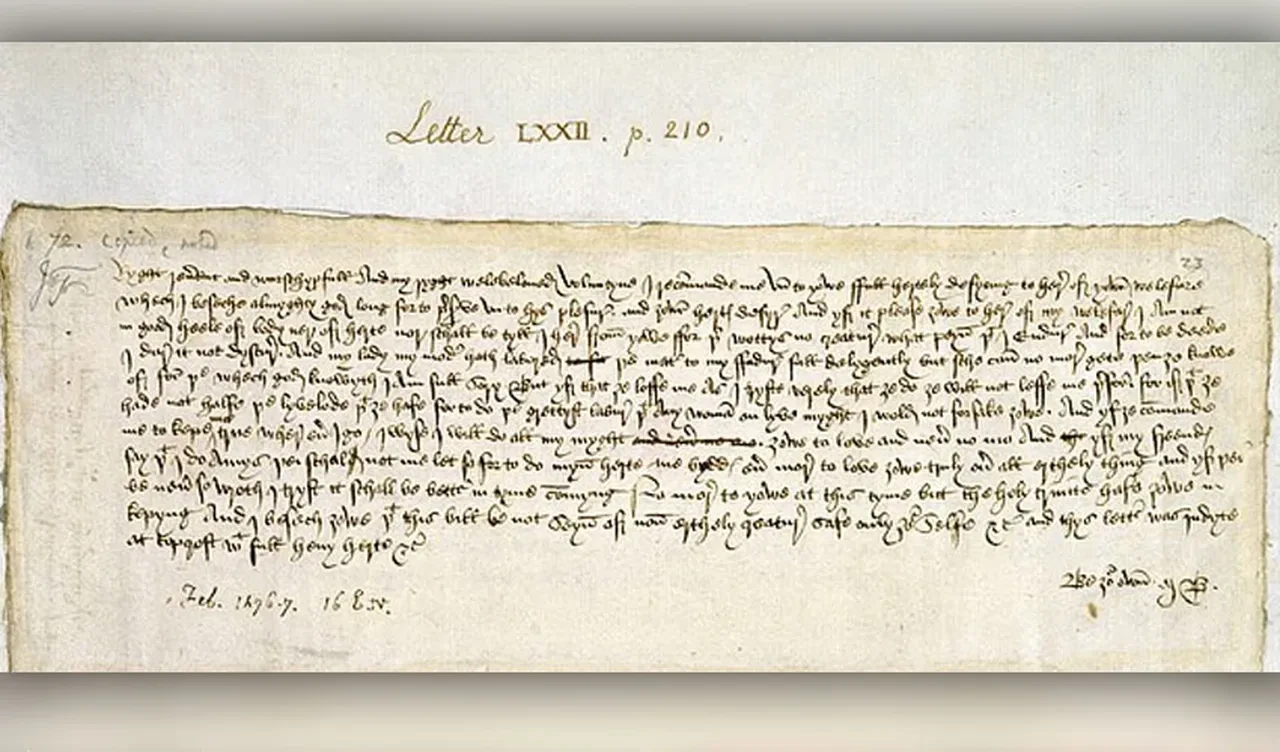 Letter LXXII. p. 210.
72. Copied, noted
23
Ryght reu'ent and wurschypfull And my ryght welebeloued Voluntyne I recomande me vn to yowe ffull hertely desyring to her' off yowr welefare
whech I beseche almyghty god long for to p'serve vn to hys plesur' and yowr hert desyr' And yff it please yowe to her' off my welefar' I Am not
in good heele off body ner off herte nor schall be tyll I her' ffrom yowe ffor þ' wottys no creatur' what peyn þ' I Endur' And for to be deede
I dur' it not dyscur' And my lady my mod' hath labored þe mat' to my ffadur full delygently but sche can no mor' gete þen ȝe knowe
off for þe whech god knowyth I Am full sory But yff that ȝe loffe me As I tryste verely that ȝe do ȝe will not leffe me þ'for' for iff þ' ȝe
hade not halfe þe lyvelode þ' ȝe hafe for to do þe grettyst labur' þ' any woman on lyve myght I wold not forsake ȝowe. And yf ȝe comande
me to kepe me true wher eu' I go I wyse I will do all my myght ȝowe to love and neu' no mo And yff my freend
sey þ' I do Amys þei schall not me let so for to do myn herte me bydd eu' mor' to love ȝowe truly ou' all erthely thing and yff þei
be neu' so wroth I tryst it schall be bett' in tyme comyng No mor' to yowe at this tyme but the holy trinite hafe ȝowe in
kepyng And I besech ȝowe þ' this bill be not seyn off non erthely creatur' safe only ȝo' selfe &c and thys lett' was indyte
at topcroft w' full heuy herte &c
Be ȝo' own M B.
Feb. 1476-7. 16 E. IV.